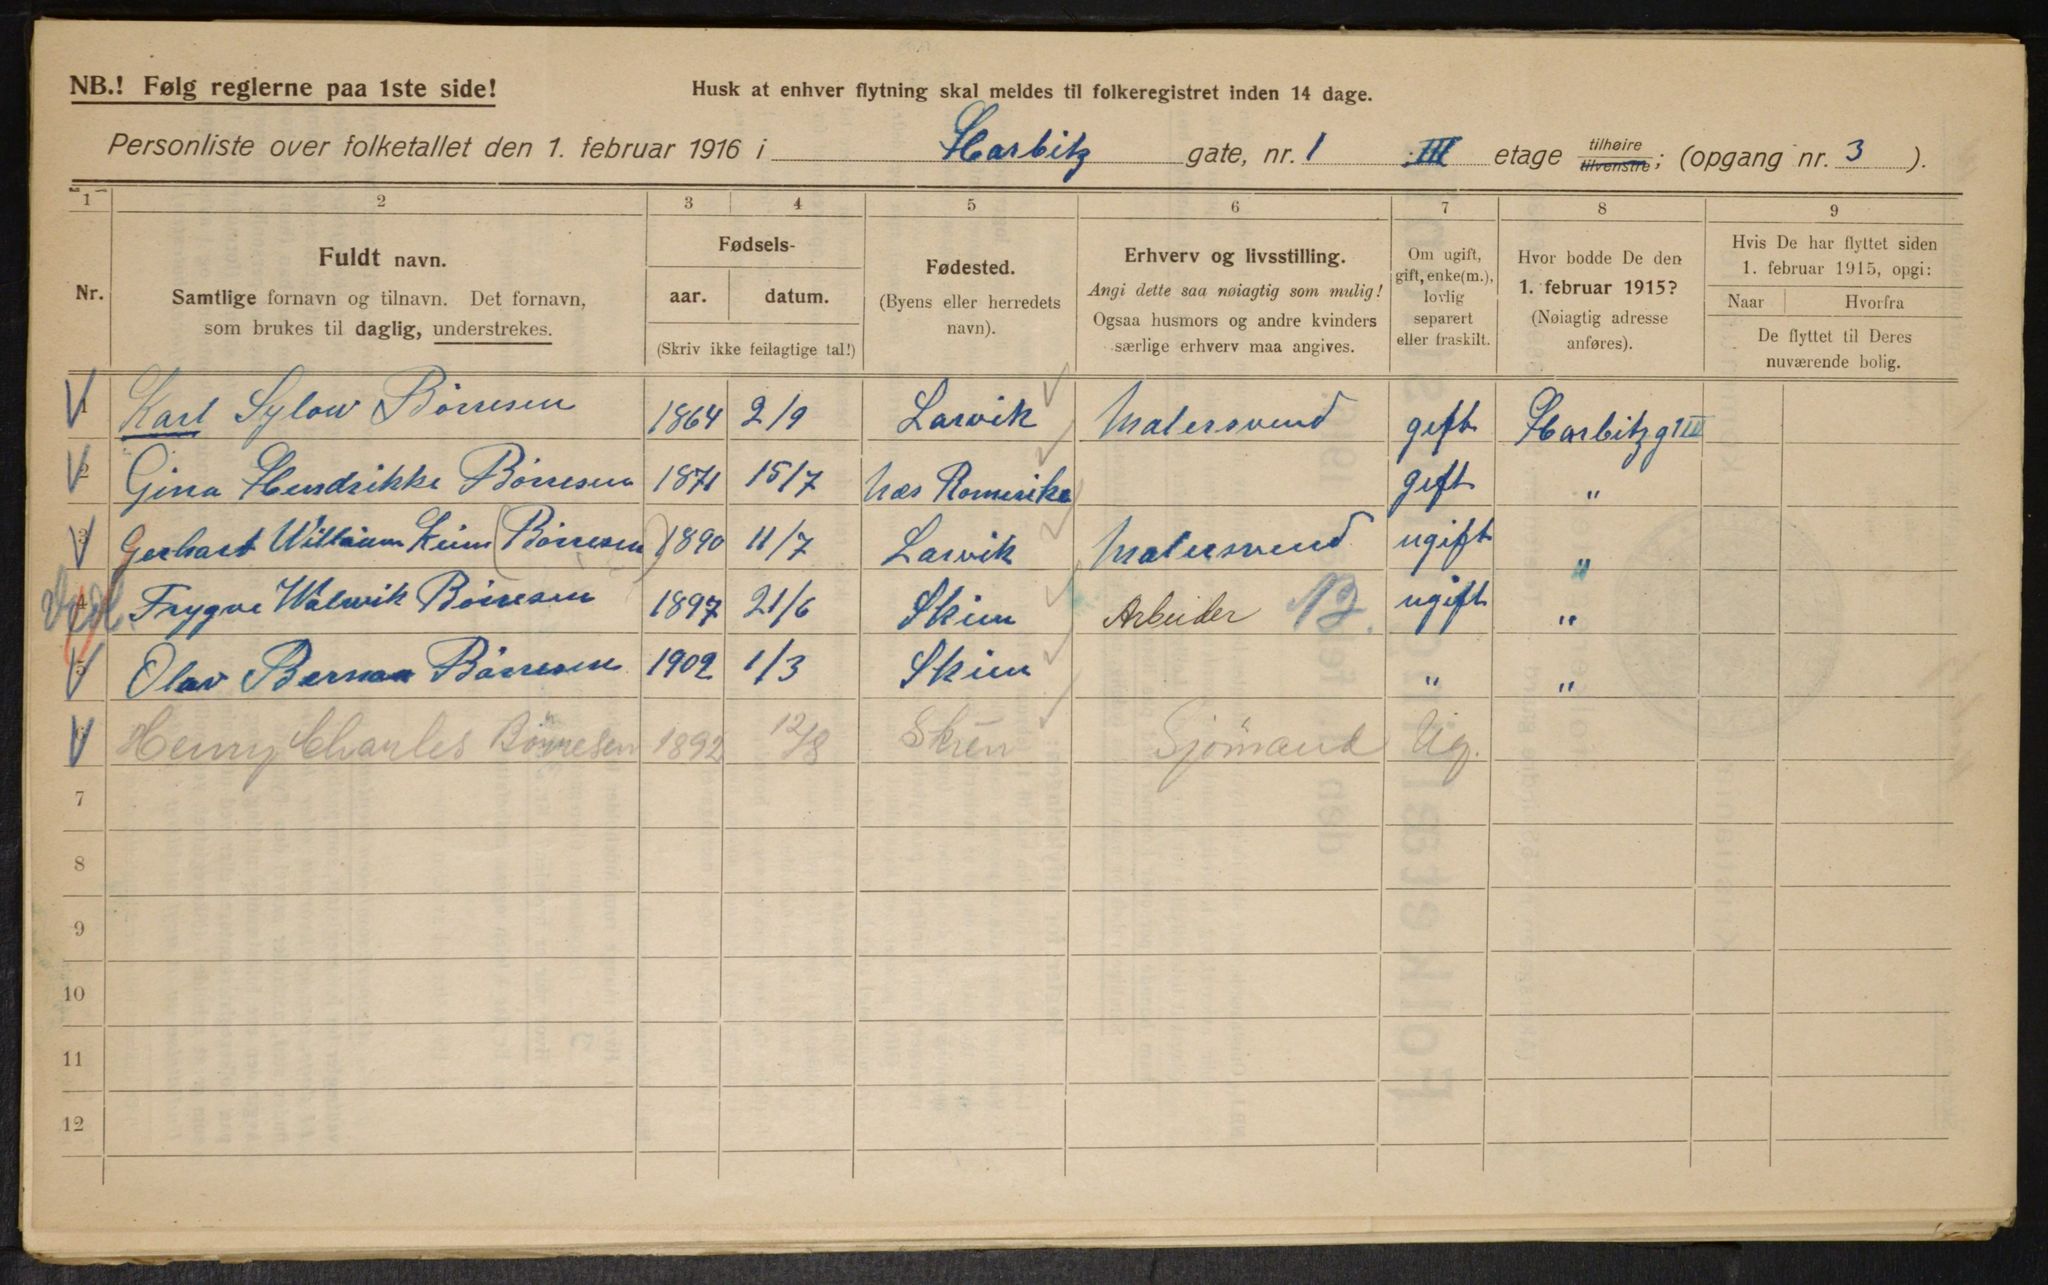 NB.! Følg reglerne paa 1ste side!
Husk at enhver flytning skal meldes til folkeregistret inden 14 dage.
Personliste over folketallet den 1. februar 1916 i Harbitz gate, nr. 1 III etage tilhøire tilvenstre; (opgang nr. 3 ).
1 2 3 4 5 6 7 8 9
Nr.
Fuldt navn.
Samtlige fornavn og tilnavn. Det fornavn,
som brukes til daglig, understrekes.
Fødsels-
aar. datum.
(Skriv ikke feilagtige tal!)
Fødested.
(Byens eller herredets
navn).
Erhverv og livsstilling.
Angi dette saa nøiagtig som mulig!
Ogsaa husmors og andre kvinders
særlige erhverv maa angives.
Om ugift,
gift, enke(m.),
lovlig
separert
eller fraskilt.
Hvor bodde De den
1. februar 1915?
(Nøiagtig adresse
anføres).
Hvis De har flyttet siden
1. februar 1915, opgi:
Naar Hvorfra
De flyttet til Deres
nuværende bolig.
1 Karl Sylow Børresen 1864 2/9 Larvik Malersvend gift Harbitzg 1 III
2 Gina Hendrikke Børresen 1871 15/7 Næs Romerike gift "
3 Gerhart William (Børresen) 1890 11/7 Larvik Malersvend ugift "
4 Trygve Walwik Børresen 1897 21/6 Skien Arbeider 12. ugift "
5 Olav Børresen 1902 1/3 Skien " "
6 Henry Charles Børresen 1892 12/8 Skien Sjömand Ug.
7
8
9
10
11
12